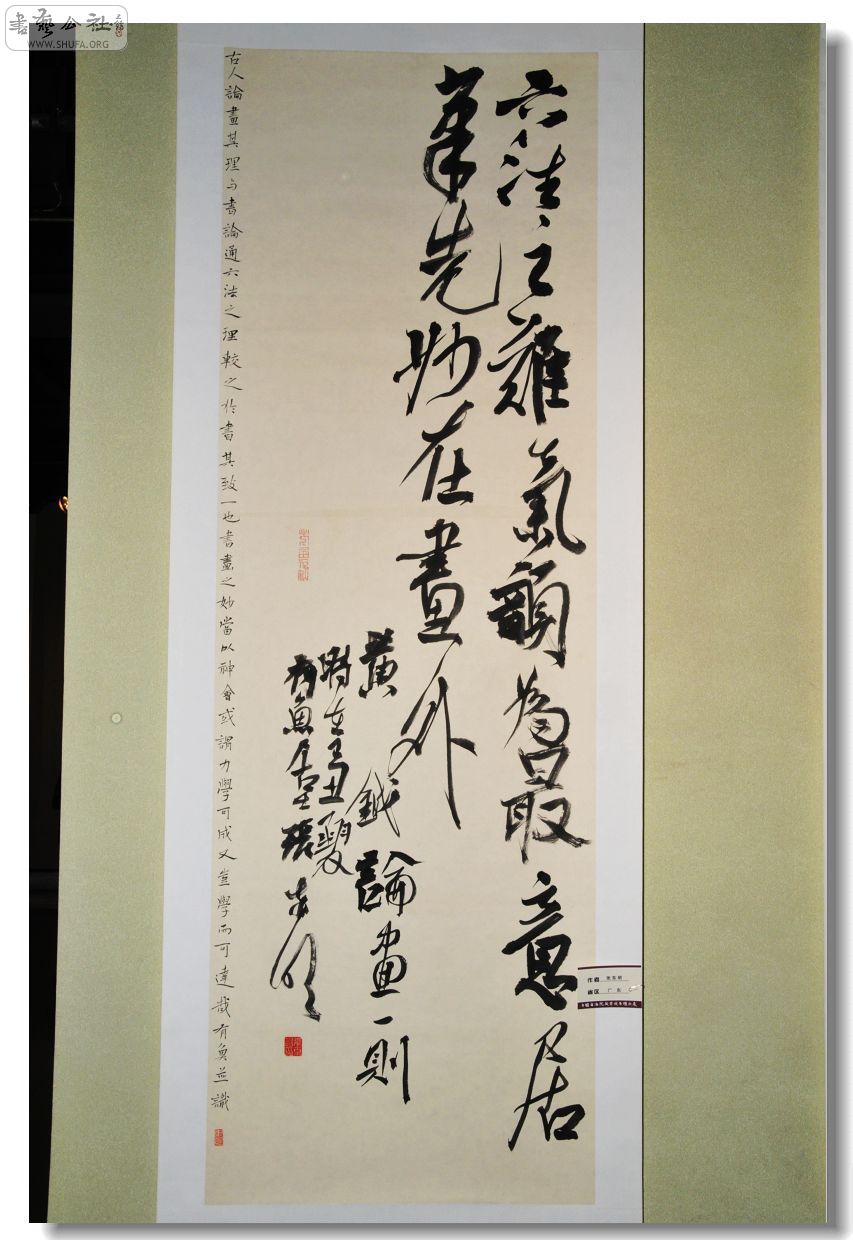 六法之難氣韻為最意居
筆先妙在畫外
黃鉞論畫一則
時在己丑夏
有魚居室張
古人論畫其理與書論通六法之理較之於書其致一也書畫之妙當以神會或謂力學可成又豈學而可達哉有魚並識
作者
省区 广东
書藝公社
WWW.SHUFA.ORG